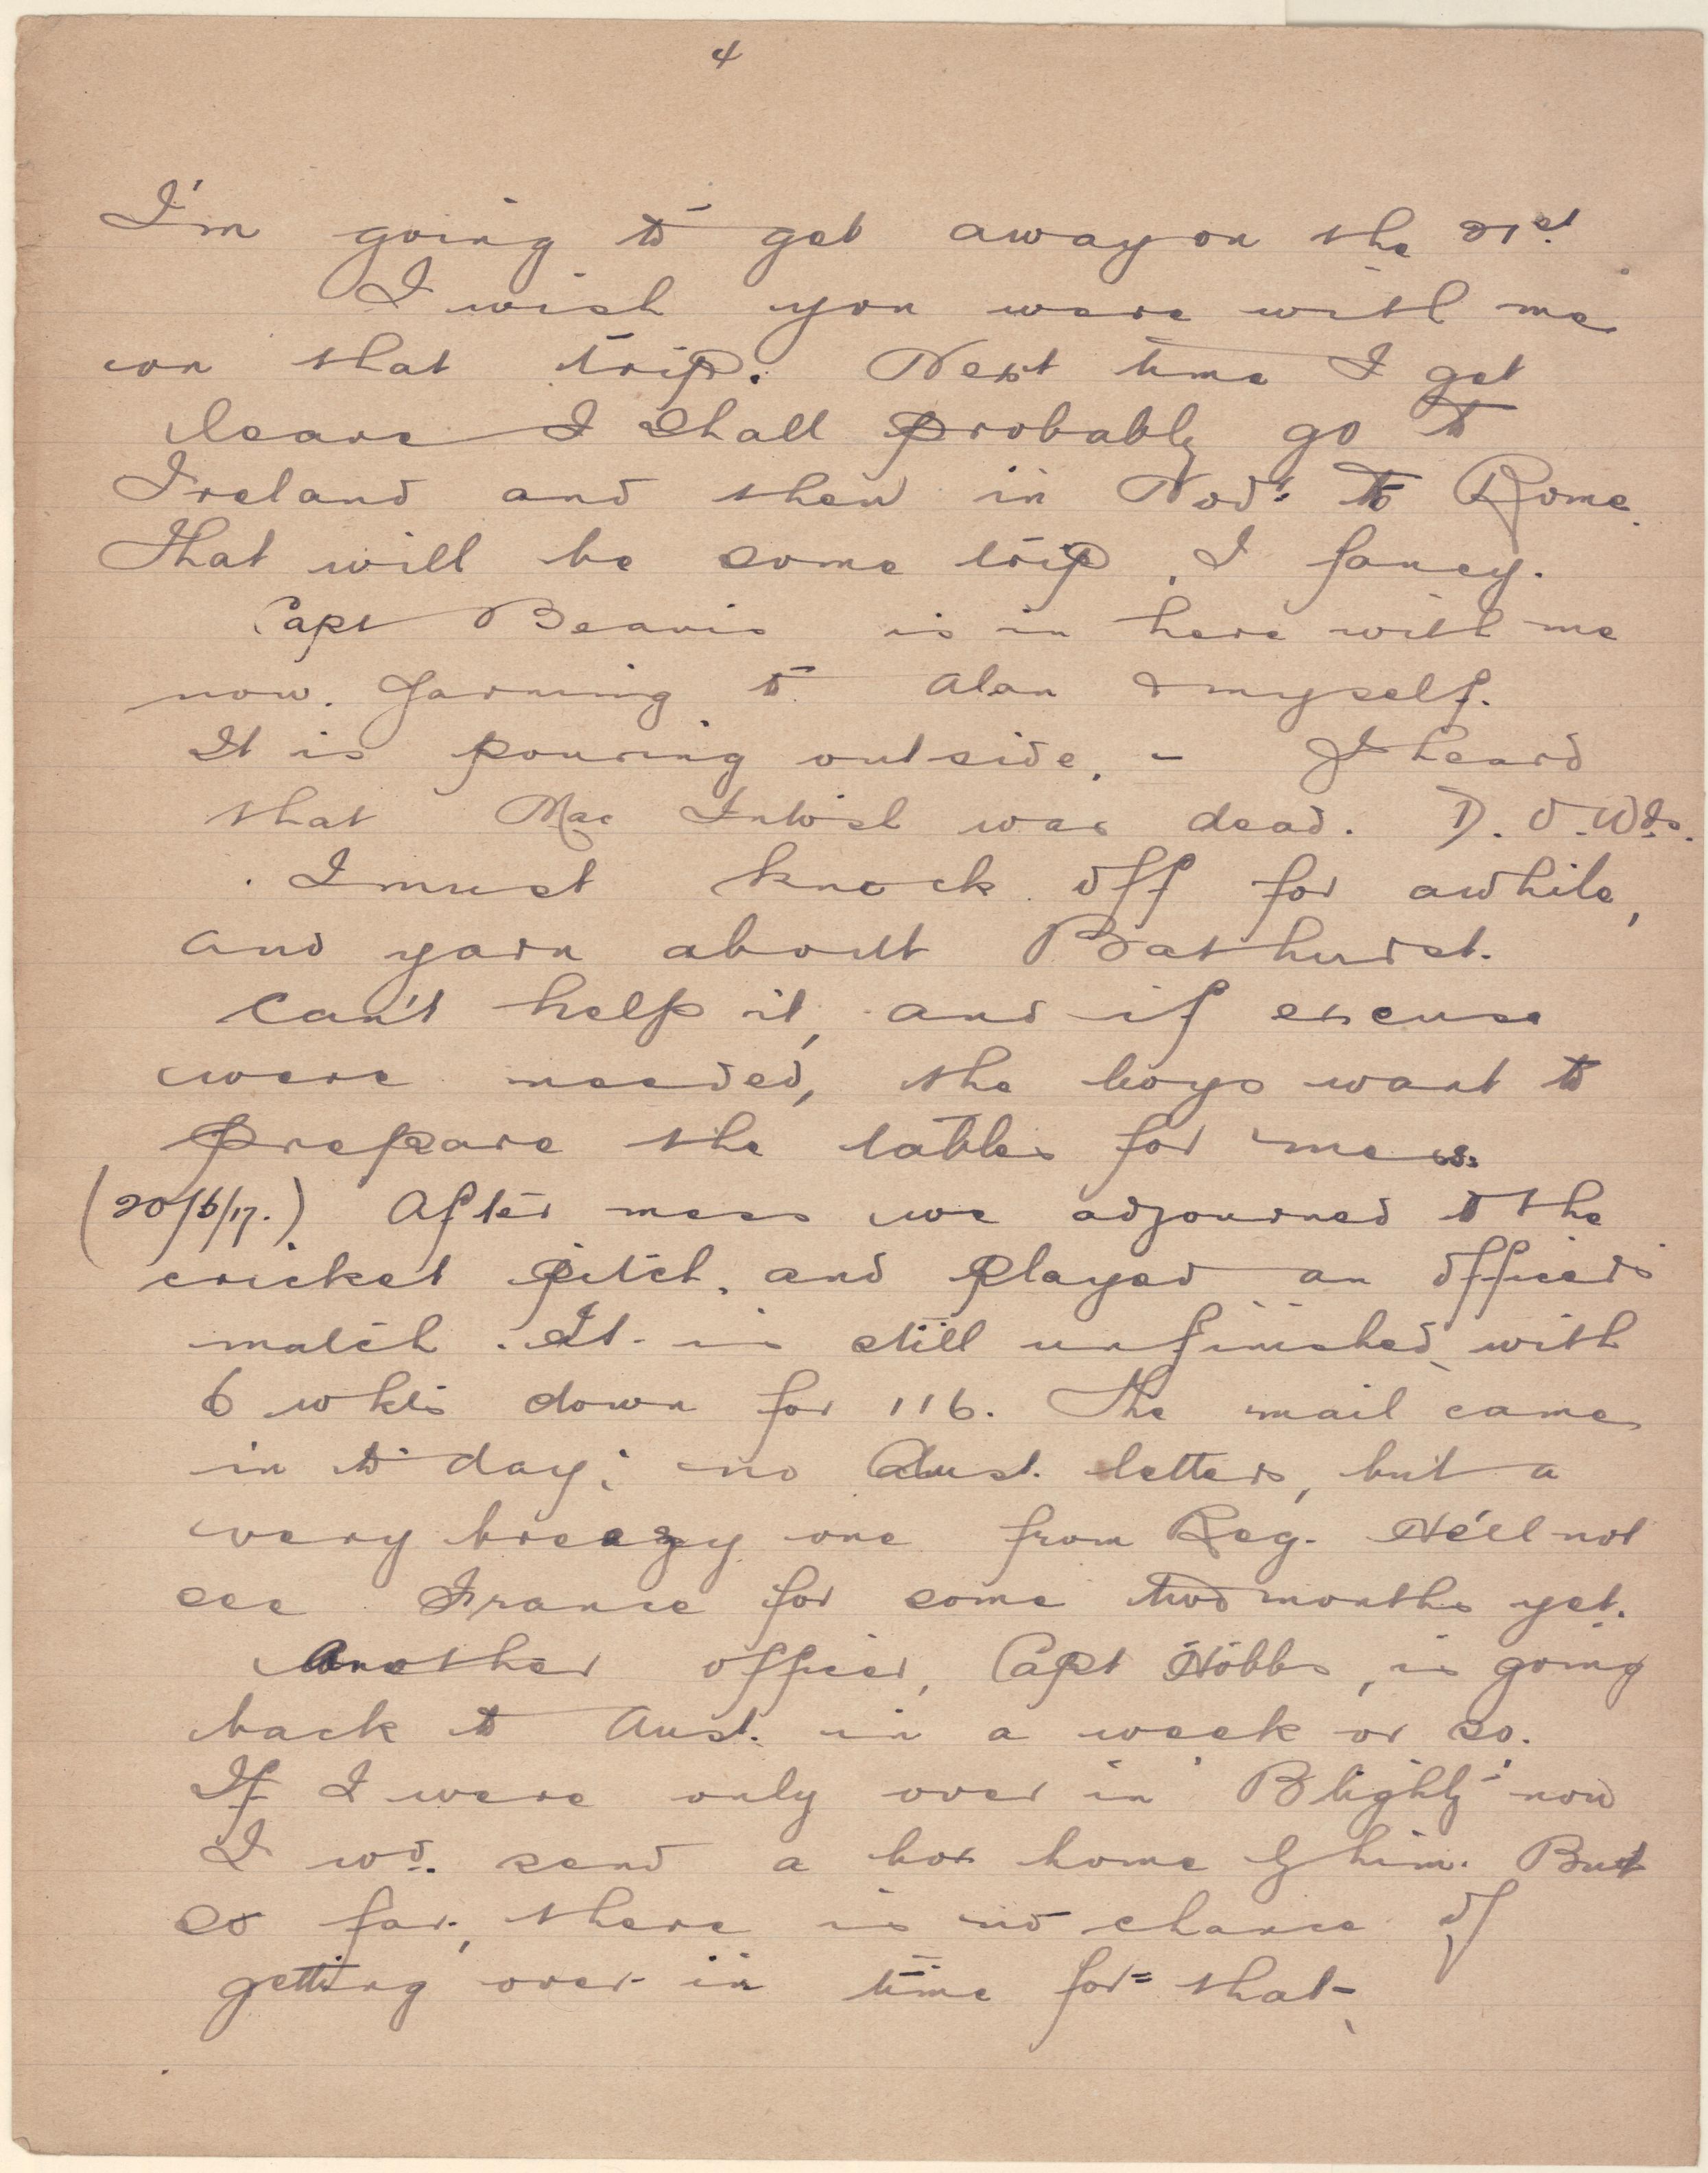 4
I'm going to get away on the 21st.
I wish you were with me
on that trip. Next time I get
leave I shall probably go to
Ireland and then in Nov. to Rome.
That will be some trip, I fancy.
Capt Beavis is in here with me
now. Yarning to Alan & myself.
It is pouring outside. - I heard
that MacIntosh was dead. D.O.Wds.
I must knock off for awhile,
and yarn about Bathurst.
Can't help it, and if excuse
were needed, the boys want to
prepare the tables for mess.
(20/6/17.) After mess we adjourned to the
cricket pitch, and played an officers'
match. It is still unfinished, with
6 wkts down for 116. The mail came
in to day; no Aust. letters, but a
very breezy one from Reg. He'll not
see France for some two months yet.
Another officer, Capt Hobbs, is going
back to Aust. in a week or so.
If I were only over in "Blighty" now
I wd. send a box home by him. But
so far, there is no chance of
getting over in time for that.